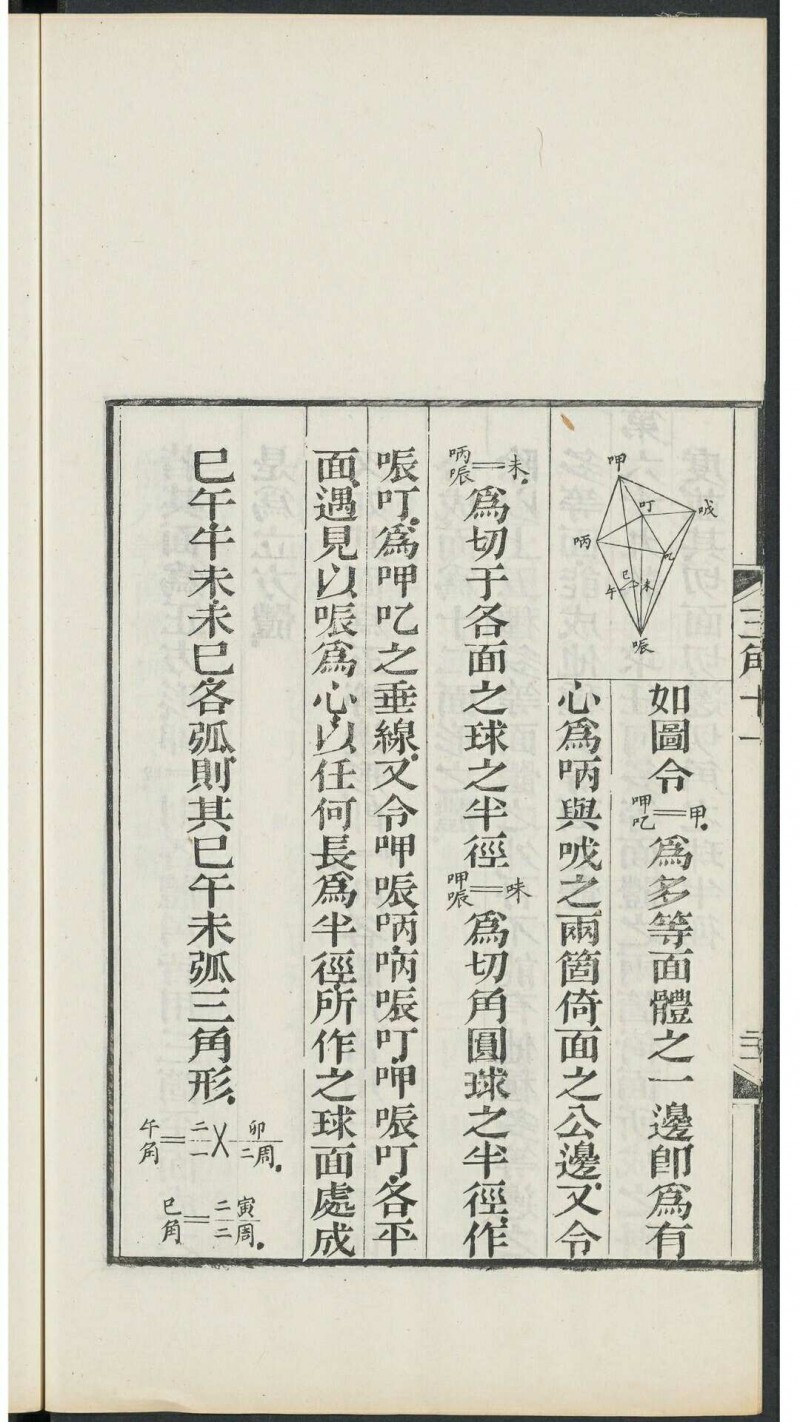 三角十一
二
呷
叮
㖅
哂
吃
巳
午
未
㖘
如圖令呷吃=甲.爲多等面體之一邊卽爲有
心爲昞與㖅之兩箇倚面之公邊又令
昞㖘=未.爲切于各面之球之半徑呷㖘=味爲切角圓球之半徑作
㖘叮爲呷吃之垂線又令呷㖘昞昞㖘叮呷㖘叮各平
面遇見以㖘爲心以任何長爲半徑所作之球面處成
巳午午未未巳各弧則其巳午未弧三角形.
午角=二一×卯二周.
巳角=二二寅周.